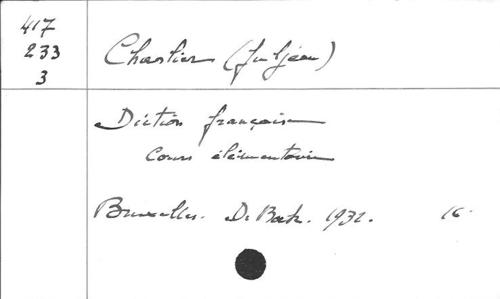 417
233
3
Charlier (Juljean)
Diction française
Cours élémentaire
Bruxelles. De Boeck. 1932. 16